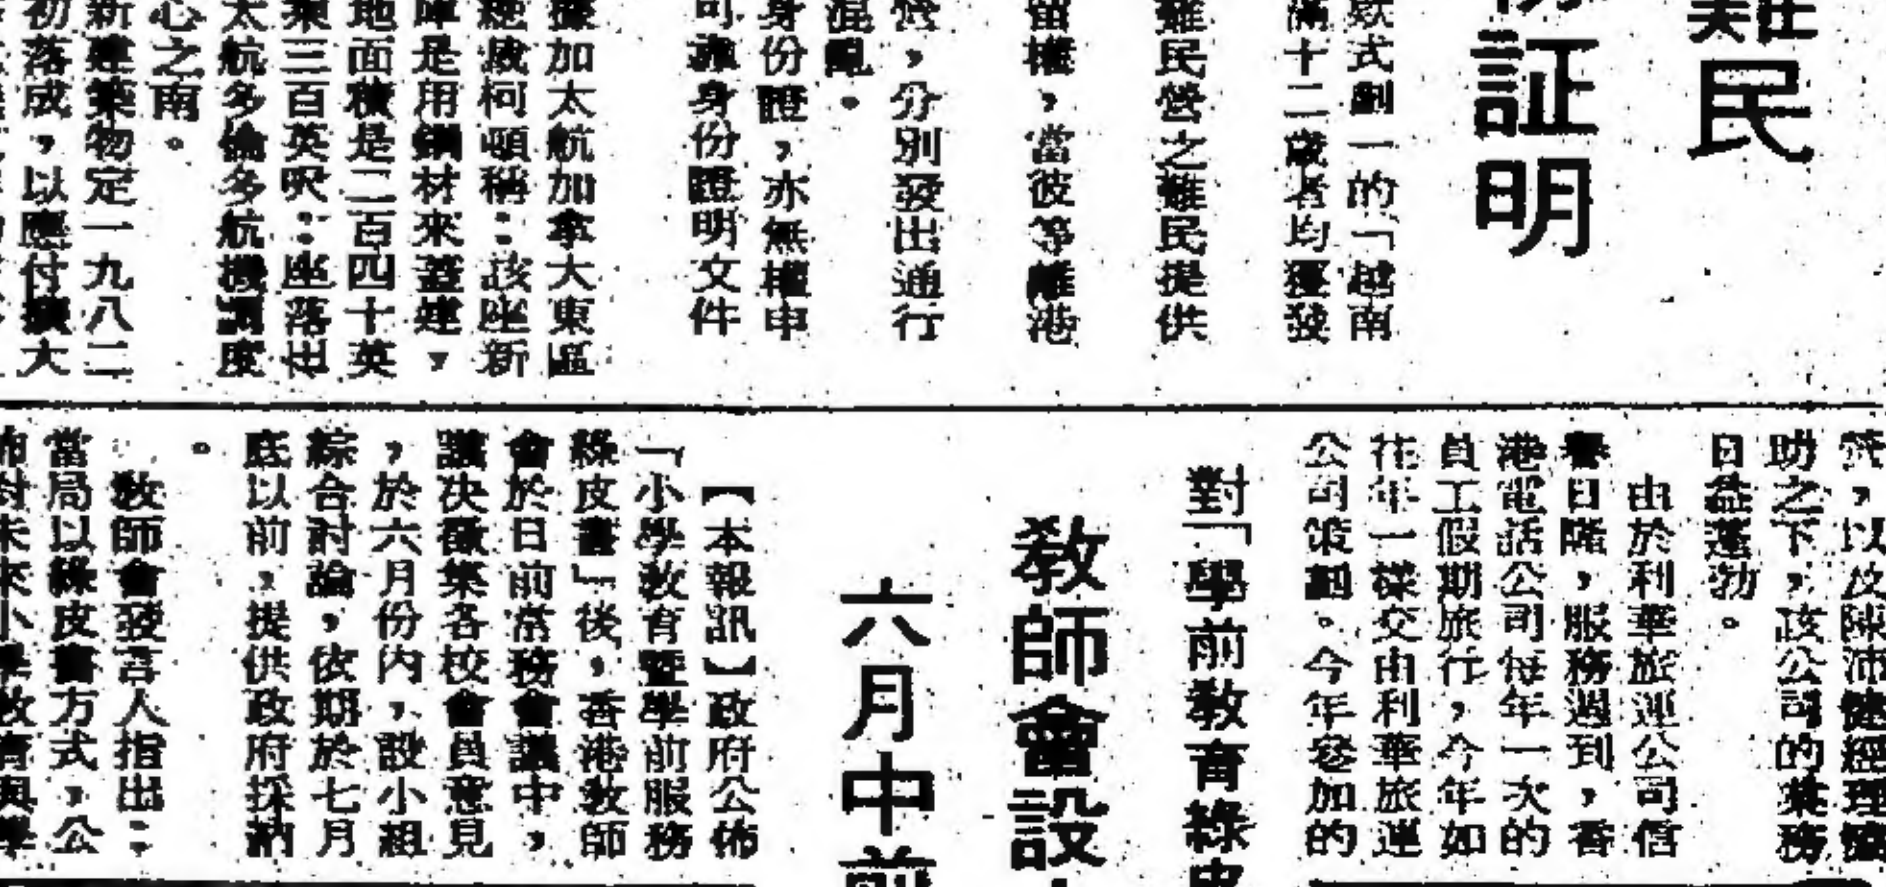 難民
証明
款式劃一的「越南
滿十二歲者均獲發
難民營之難民提供
留權，當彼等離港
營，分別發出通行
混亂。
身份證，亦無權申
司法身份證明文件
據加太航加拿大東區
總裁柯頓稱：該座新
庫是用鋼材來蓋建，
地面積是二百四十英
乘三百英呎：座落出
太航多倫多航機調度
心之南。
新建築物定一九八二
初落成，以應付擴大
營，以及陳沛健經理
助之下，該公司的業務
日益蓬勃。
由於利華旅運公司信
譽日隆，服務週到，香
港電話公司每年一次的
員工假期旅行，今年如
往年一樣交由利華旅運
公司策劃。今年參加的
對「學前教育綠皮
教師會設
六月中前
【本報訊】政府公佈
「小學教育暨學前服務
綠皮書」後，香港教師
會於日前常務會議中，
議決徵集各校會員意見
，於六月份內，設小組
綜合討論，依期於七月
底以前，提供政府採納
。
教師會發言人指出：
當局以綠皮書方式，公
佈對未來小學教育與學